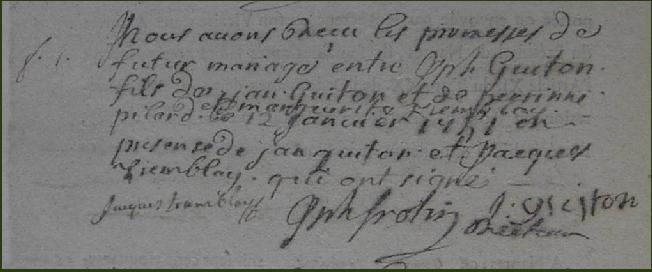 f. 1.
Nous avons Receu les promesses de
futur mariage entre Jph Guiton
fils de jan Guiton et de perrinne
et marguerite Tremblay
pilard le 12 janvier 1751 en
presense de jan guiton et Jacques
Tremblay qui ont signé
jacques tramblay J. guiton